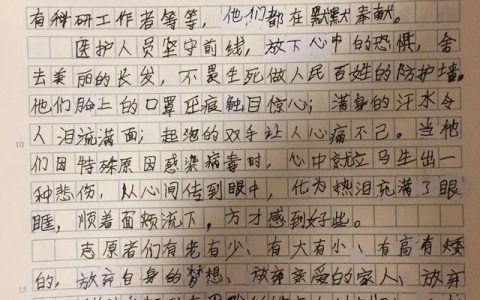 有科研工作者等等，他们都在默默奉献。
医护人员坚守前线，放下心中的恐惧，舍
去美丽的长发，不畏生死做人民百姓的防护墙。
他们脸上的口罩压痕触目惊心；满身的汗水令
人泪流满面；起泡的双手让人心痛不已。当他
10 们因特殊原因感染病毒时，心中就立马生出一
种悲伤，从心间传到眼中，化为热泪充满了眼
眶，顺着面颊流下，方才感到好些。
志愿者们有老有少、有大有小、有高有矮
15 的，放弃自身的梦想、放弃亲爱的家人、放弃